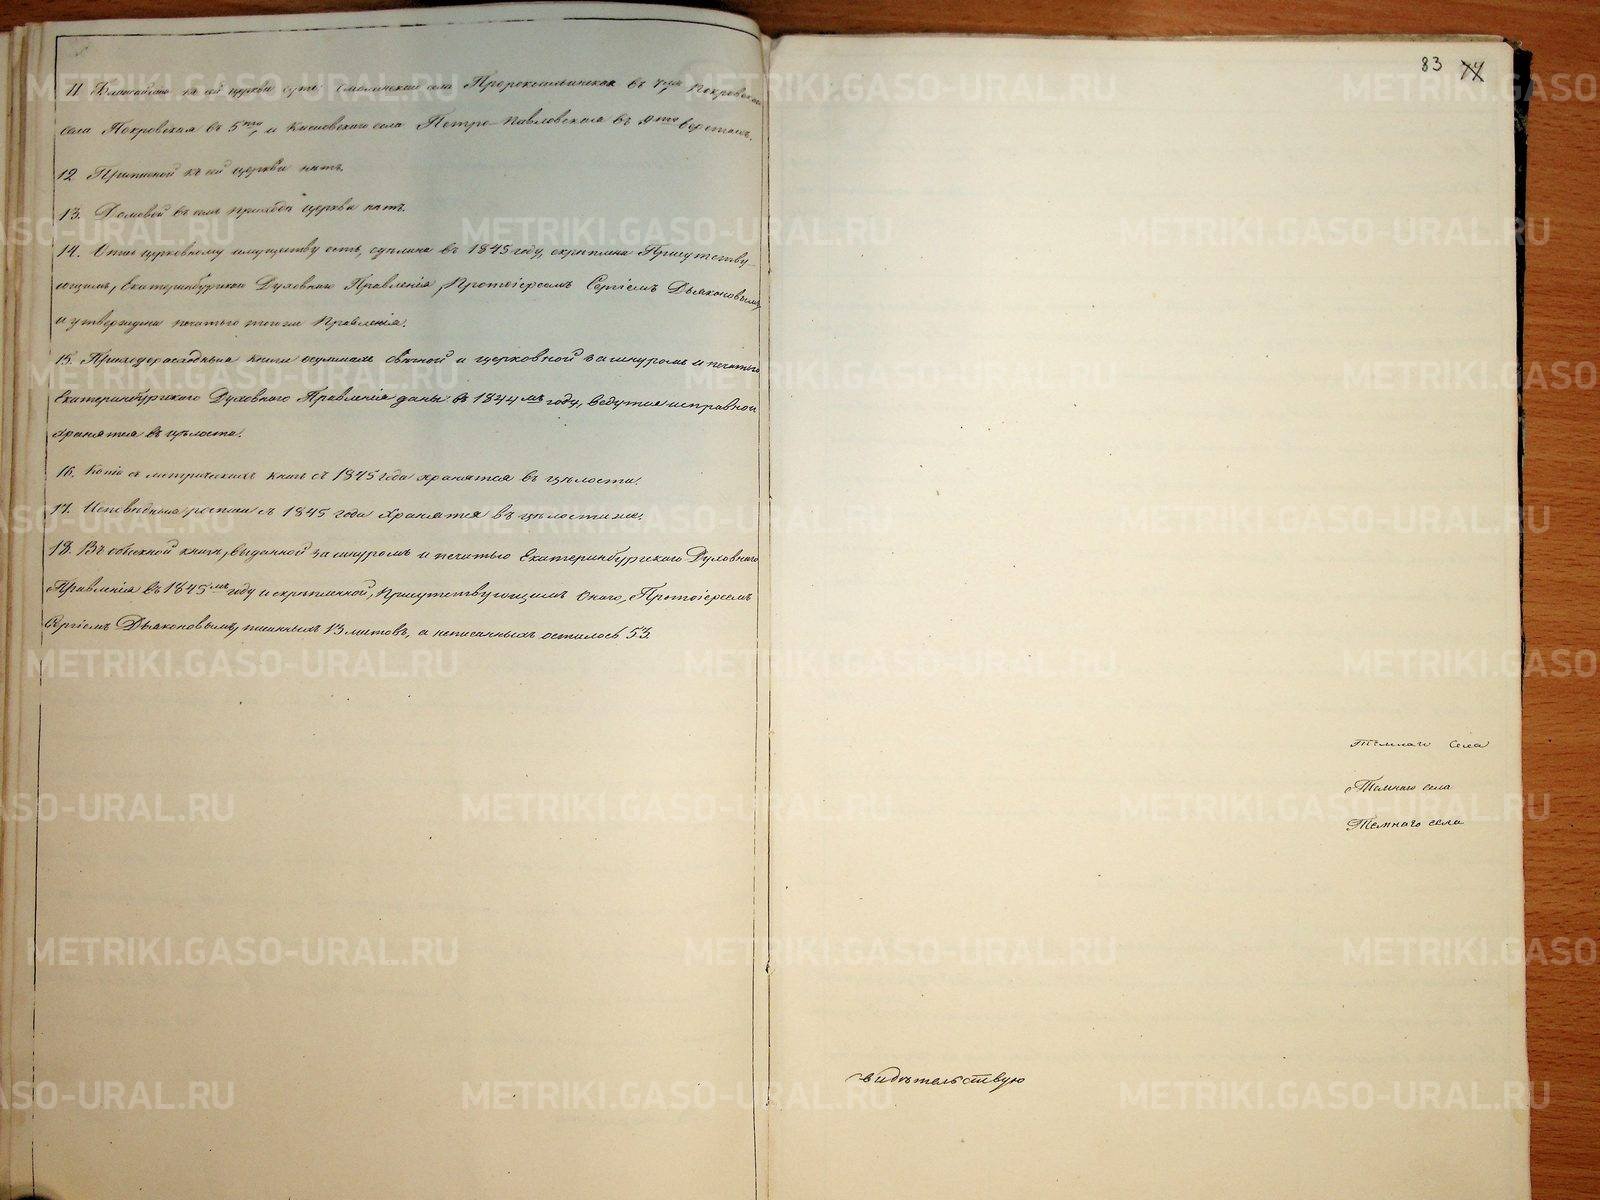 11. Ближайшія къ сей церкви суть: Смолинскаго села Пророкоильинская въ 7ми Покровскаго
села Покровская въ 5ти, и Кисловскаго села Петро-Павловская въ верстахъ.
12. Приписной къ сей церкви нѣтъ.
13. Домовой въ семъ приходѣ церкви нѣтъ.
14. Опись церковному имуществу есть, сдѣлана въ 1845 году, скрѣплена Присутству-
ющимъ, Екатеринбургскаго Духовнаго Правленія, Протоіереемъ Сергіемъ Дьяконовымъ,
и утверждена печатью того Правленія.
15. Приходорасходныя книги о суммахъ свѣчной и церковной за шнуромъ и печатью
Екатеринбургскаго Духовнаго Правленія даны въ 1844мъ году, ведутся исправно и
хранятся въ цѣлости.
16. Копіи съ метрическихъ книгъ съ 1845 года хранятся въ цѣлости.
17. Исповѣдныя росписи съ 1845 года хранятся въ цѣлости же.
18. Въ обыскной книгѣ, выданной за шнуромъ и печатью Екатеринбургскаго Духовнаго
Правленія въ 1845мъ году и скрѣпленной, Присутствующимъ онаго, Протоіереемъ
Сергіемъ Дьяконовымъ, писанныхъ 13 листовъ, а неписанныхъ осталось 53.
83 77
Темнаго села
Темнаго села
Темнаго села
видѣтельствую
METRIKI.GASO-URAL.RU